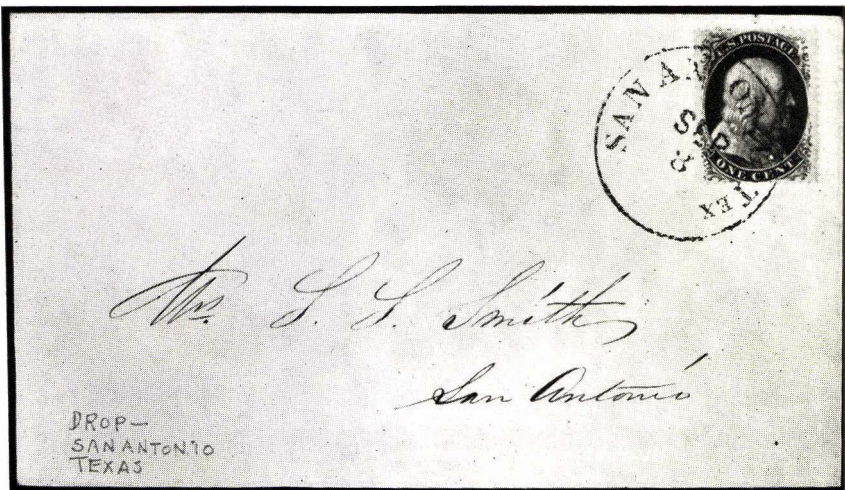 U.S. POSTAGE
ONE CENT
SAN ANTONIO TEX
SEP
8
Mrs. S. S. Smith
San Antonio
DROP—
SAN ANTONIO
TEXAS